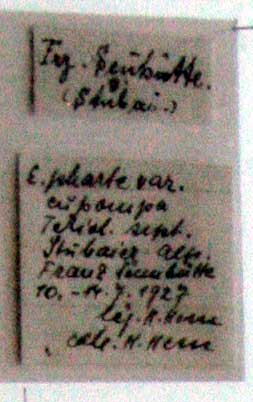 Frz. Senhütte.
(Stubai.)
E. pharte var.
eupompa
Teriol. sept.
Stubaier Alp.
Franz Sennhütte
10.-14.7.1927
leg. H.
coll. H.